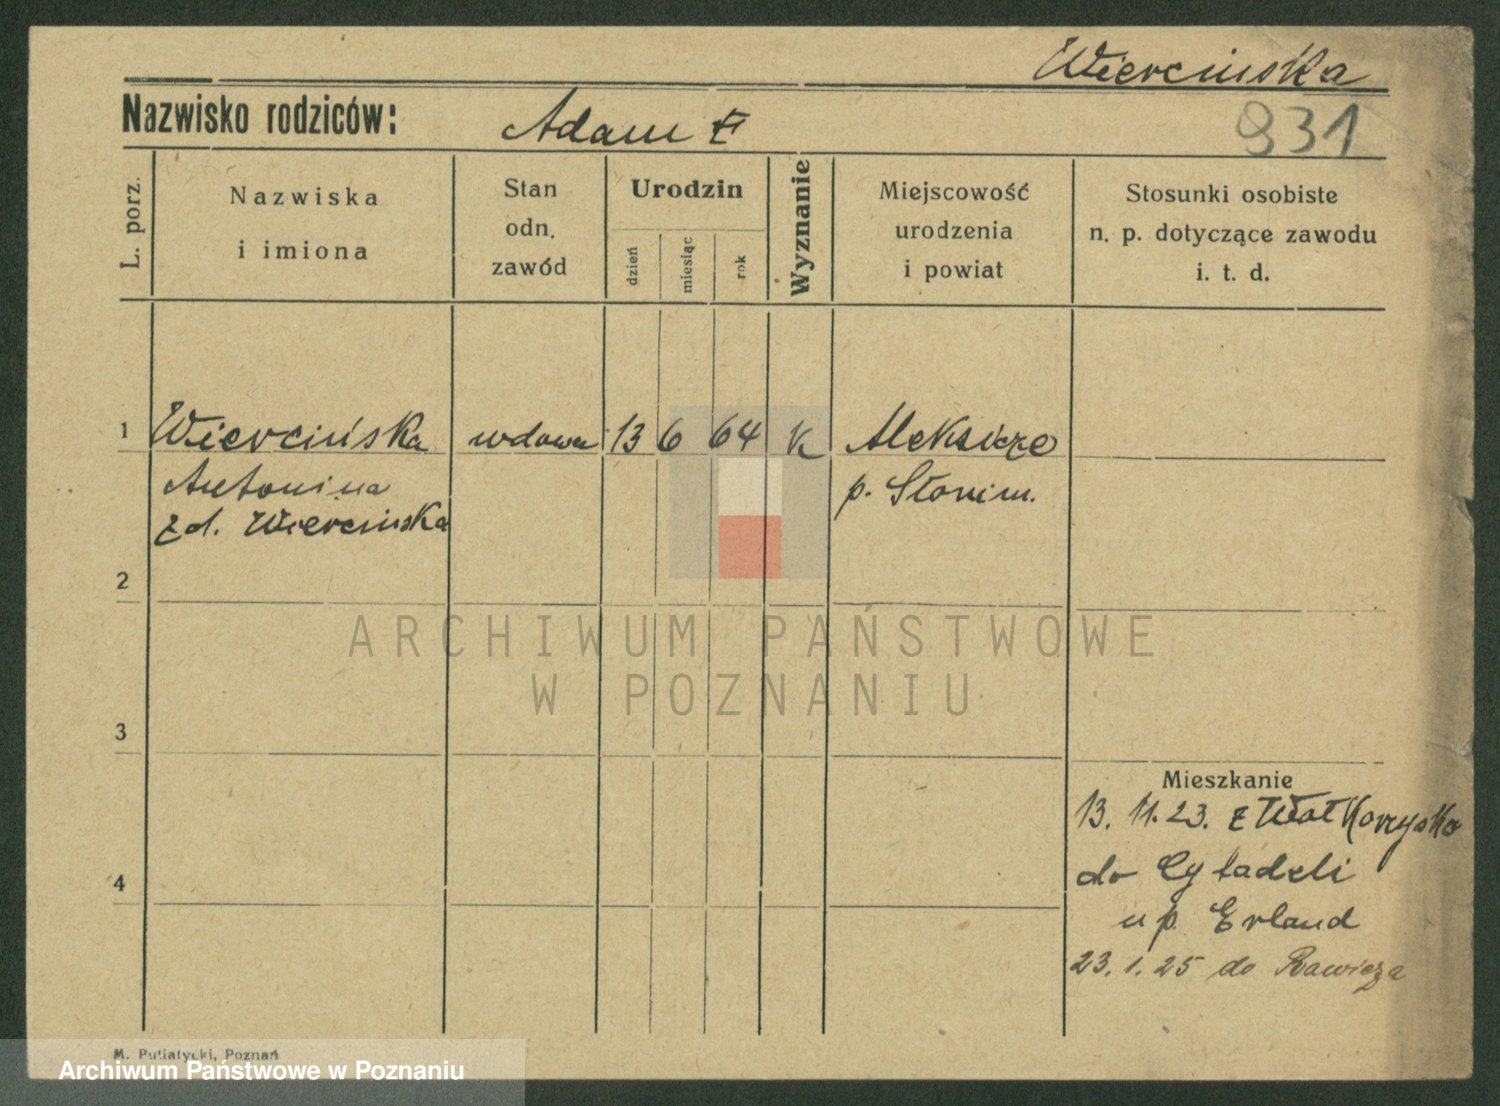 Wiercinska
Nazwisko rodziców: Adam
931
L. porz.
Nazwiska
i imiona
Stan
odn.
zawód
Urodzin
dzień
miesiąc
rok
Wyznanie
Miejscowość
urodzenia
i powiat
Stosunki osobiste
n. p. dotyczące zawodu
i. t. d.
1 Wiercińska wdowa 13 6 64 K
Antonina p. Słonim.
zd. Wiercinska
2
ARCHIWUM PAŃSTWOWE
W POZNANIU
3
Mieszkanie
13. 11. 23. z
4 do Cytadeli
u p. Erland
23. 1. 25 do Rawicza
M. Putiatycki, Poznań
Archiwum Państwowe w Poznaniu